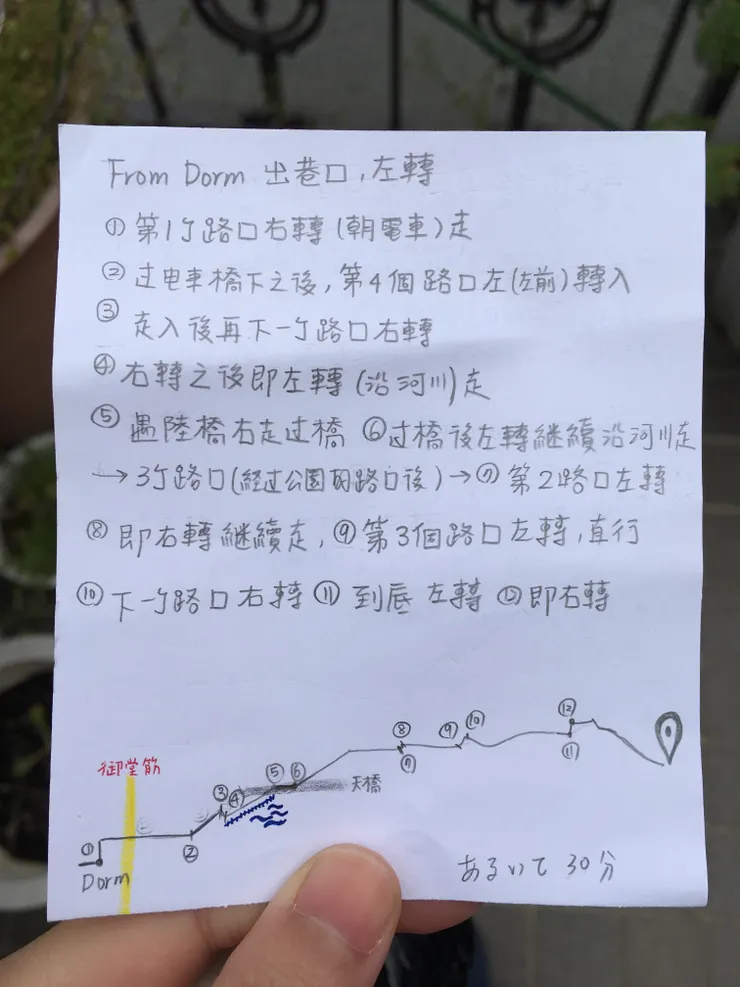 From Dorm 出巷口,左轉
① 第1ㄎ路口右轉(朝電車)走
② 过电車橋下之後,第4個路口左(左前)轉入
③ 走入後再下一ㄎ路口右轉
④ 右轉之後即左轉(沿河川)走
⑤ 遇陸橋右走过橋 ⑥过橋後左轉継續沿河川走
→ 3ㄎ路口(経过公園的路口後)→⑦ 第2路口左轉
⑧ 即右轉継續走,⑨ 第3個路口左轉,直行
⑩ 下一ㄎ路口右轉 ⑪ 到底左轉 ⑫即右轉
⑫
⑧ ⑨ ⑩
御堂筋 ⑤ ⑥ ⑦ ⑪
③ ④ 天橋
① ②
Dorm あるいて 30分